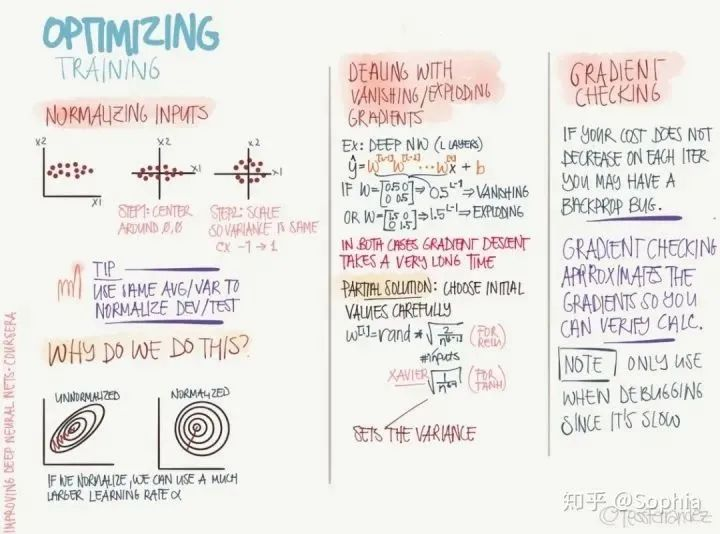 OPTIMIZING
TRAINING
NORMALIZING INPUTS
X2
X1
X2
X1
X2
X1
STEP1: CENTER
AROUND 0,0
STEP2: SCALE
SO VARIANCE IS SAME
EX -1 → 1
TIP
USE SAME AVG/VAR TO
NORMALIZE DEV/TEST
WHY DO WE DO THIS?
UNNORMALIZED
NORMALIZED
IF WE NORMALIZE, WE CAN USE A MUCH
LARGER LEARNING RATE α
IMPROVING DEEP NEURAL NETS · COURSERA
DEALING WITH
VANISHING/EXPLODING
GRADIENTS
EX: DEEP NW (L LAYERS)
ŷ = W[L-1] W[L-2] ... W[1] X + b
IF W = [0.5 0 0 0.5] ⇒ 0.5^L-1 ⇒ VANISHING
OR W = [1.5 0 0 1.5] ⇒ 1.5^L-1 ⇒ EXPLODING
IN BOTH CASES GRADIENT DESCENT
TAKES A VERY LONG TIME
PARTIAL SOLUTION: CHOOSE INITIAL
VALUES CAREFULLY
W[l] = rand * √2/n[l-1] (FOR RELU)
#INPUTS
XAVIER √1/n[l-1] (FOR TANH)
SETS THE VARIANCE
GRADIENT
CHECKING
IF YOUR COST DOES NOT
DECREASE ON EACH ITER
YOU MAY HAVE A
BACKPROP BUG.
GRADIENT CHECKING
APPROXIMATES THE
GRADIENTS SO YOU
CAN VERIFY CALC.
NOTE ONLY USE
WHEN DEBUGGING
SINCE IT'S SLOW
知乎 @Sophia
@TessFerrandez